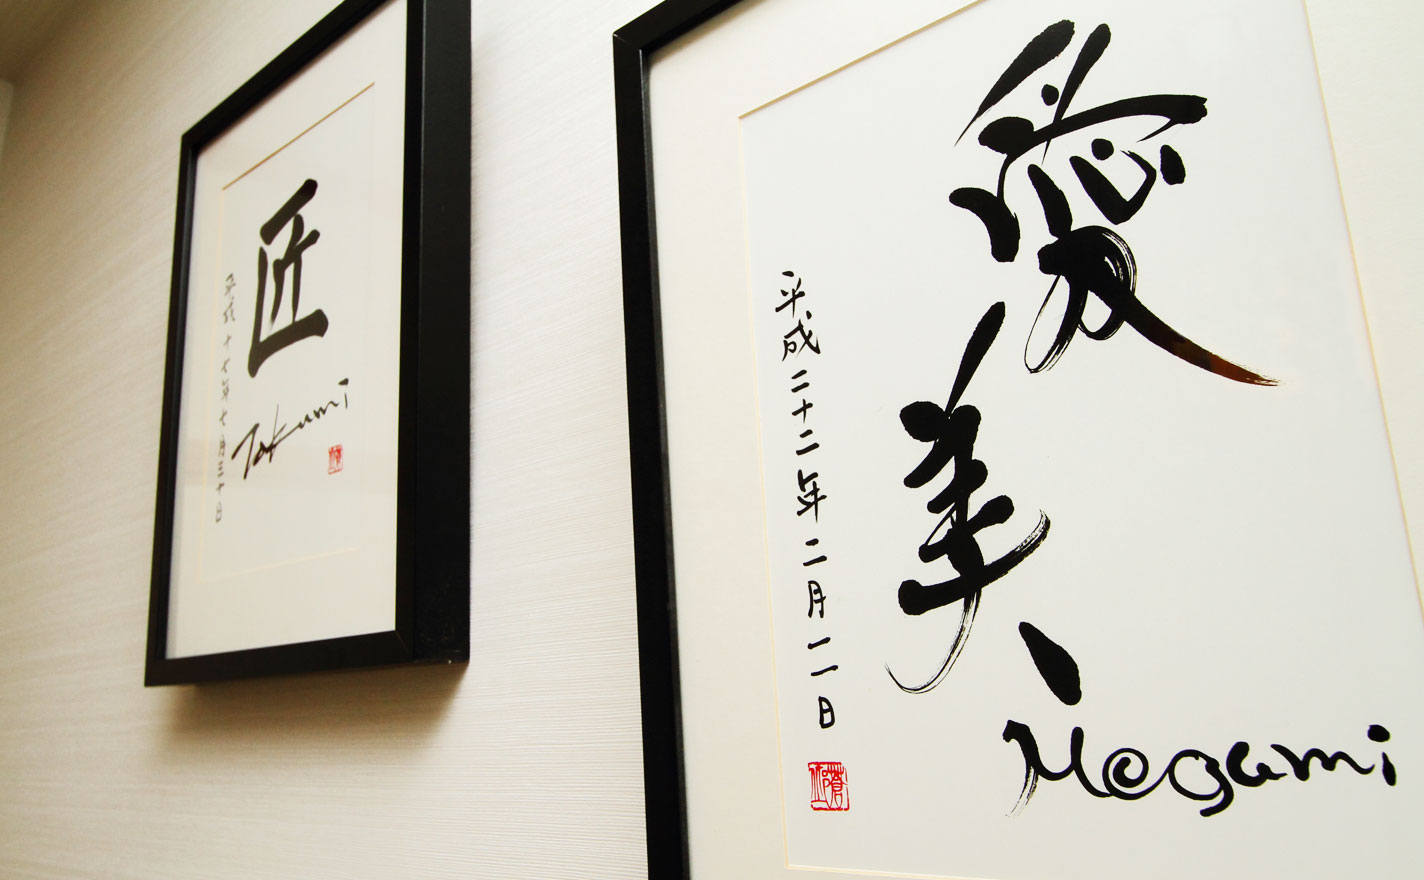 匠
Takumi
平成十七年七月三十日
愛美
Megumi
平成二十二年二月二日